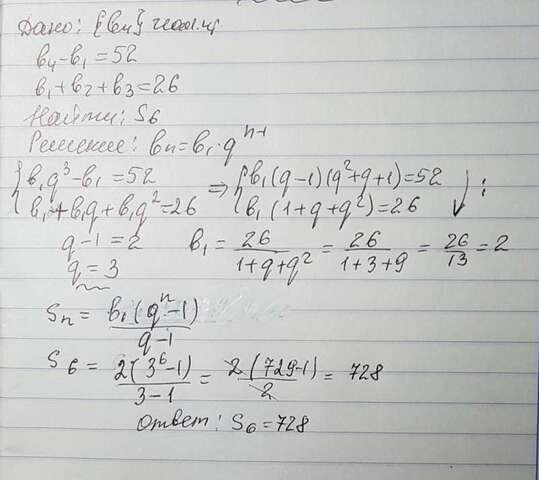 Дано: {bn} геом.
b₄-b₁=52
b₁+b₂+b₃=26
Найти: S₆
Решение: bn=b₁·q^(n-1)
{b₁q³-b₁=52 ⇒ {b₁(q-1)(q²+q+1)=52
{b₁+b₁q+b₁q²=26 {b₁(1+q+q²)=26 ↓ :
q-1=2 b₁=26/(1+q+q²)=26/(1+3+9)=26/13=2
q=3
Sn=b₁(qⁿ-1)/(q-1)
S₆=2(3⁶-1)/(3-1)=2(729-1)/2=728
Ответ: S₆=728